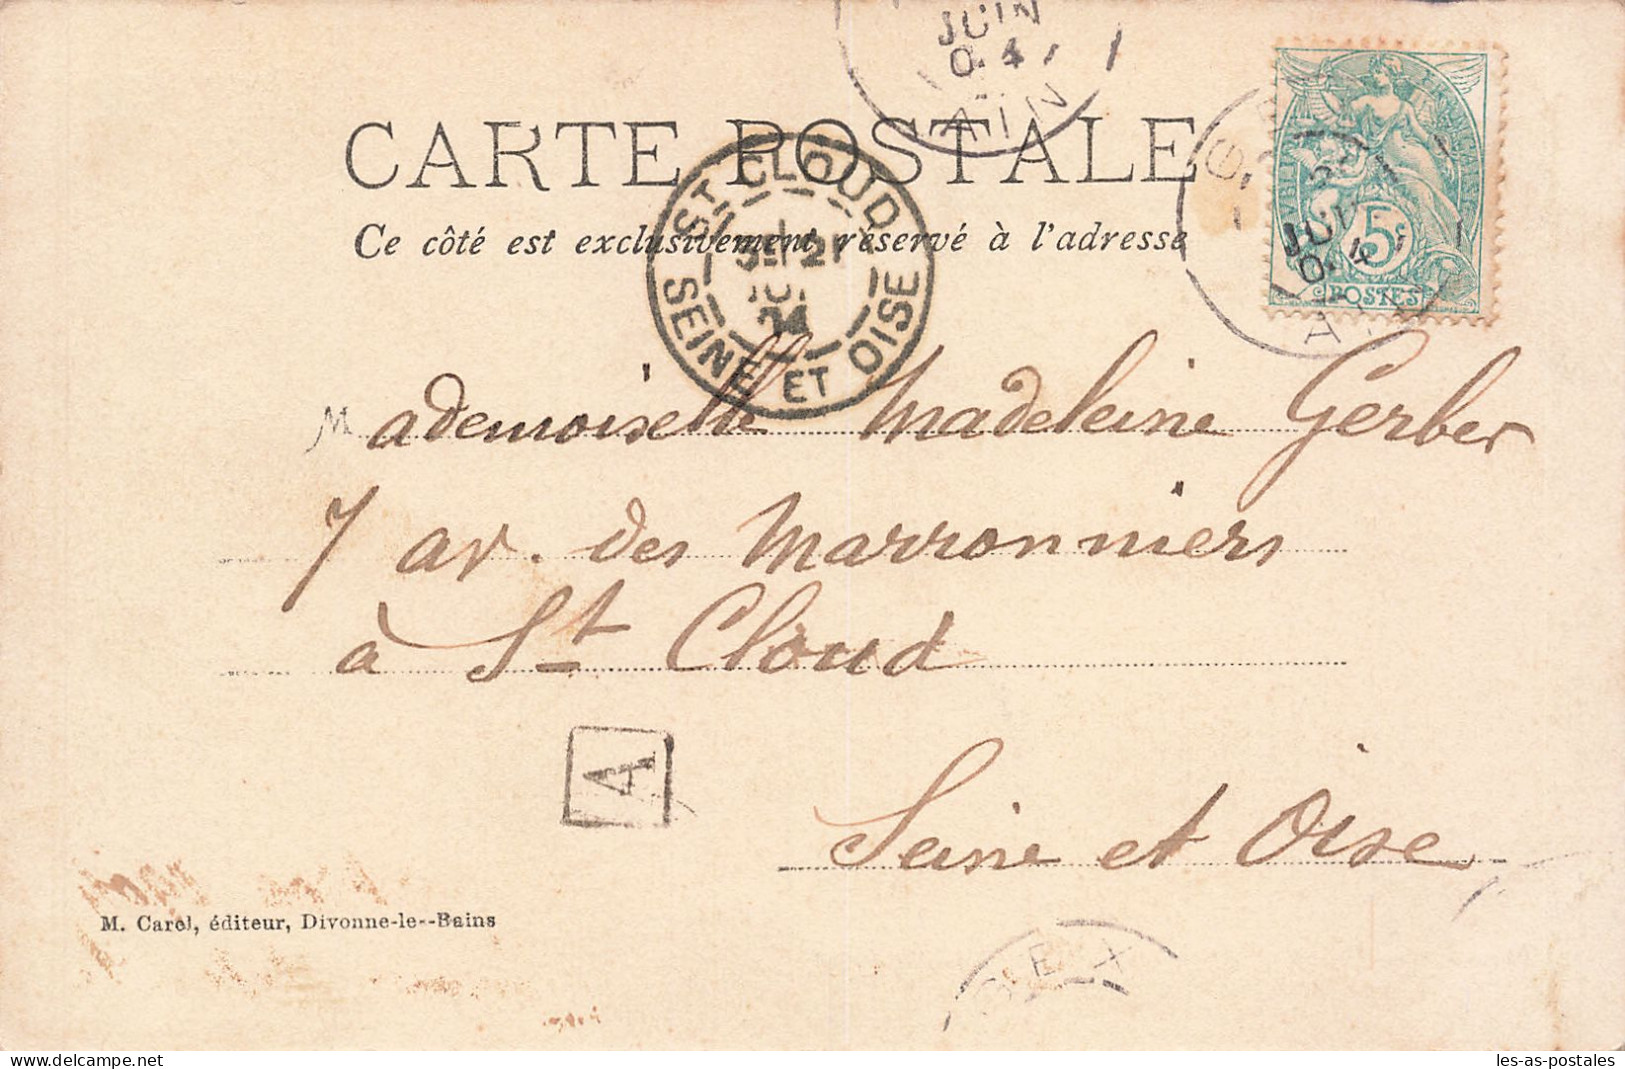 JUIN
04
AIN
CARTE POSTALE
Ce côté est exclusivement réservé à l'adresse
ST CLOUD
21
04
SEINE ET OISE
G
JUIN
04
5c
POSTES
Mademoiselle Madeleine Gerber
7 av. des Marronniers
à St Cloud
A
Seine et Oise
M. Carel, éditeur, Divonne-le--Bains
GEX
Website : www.delcampe.net
les-as-postales